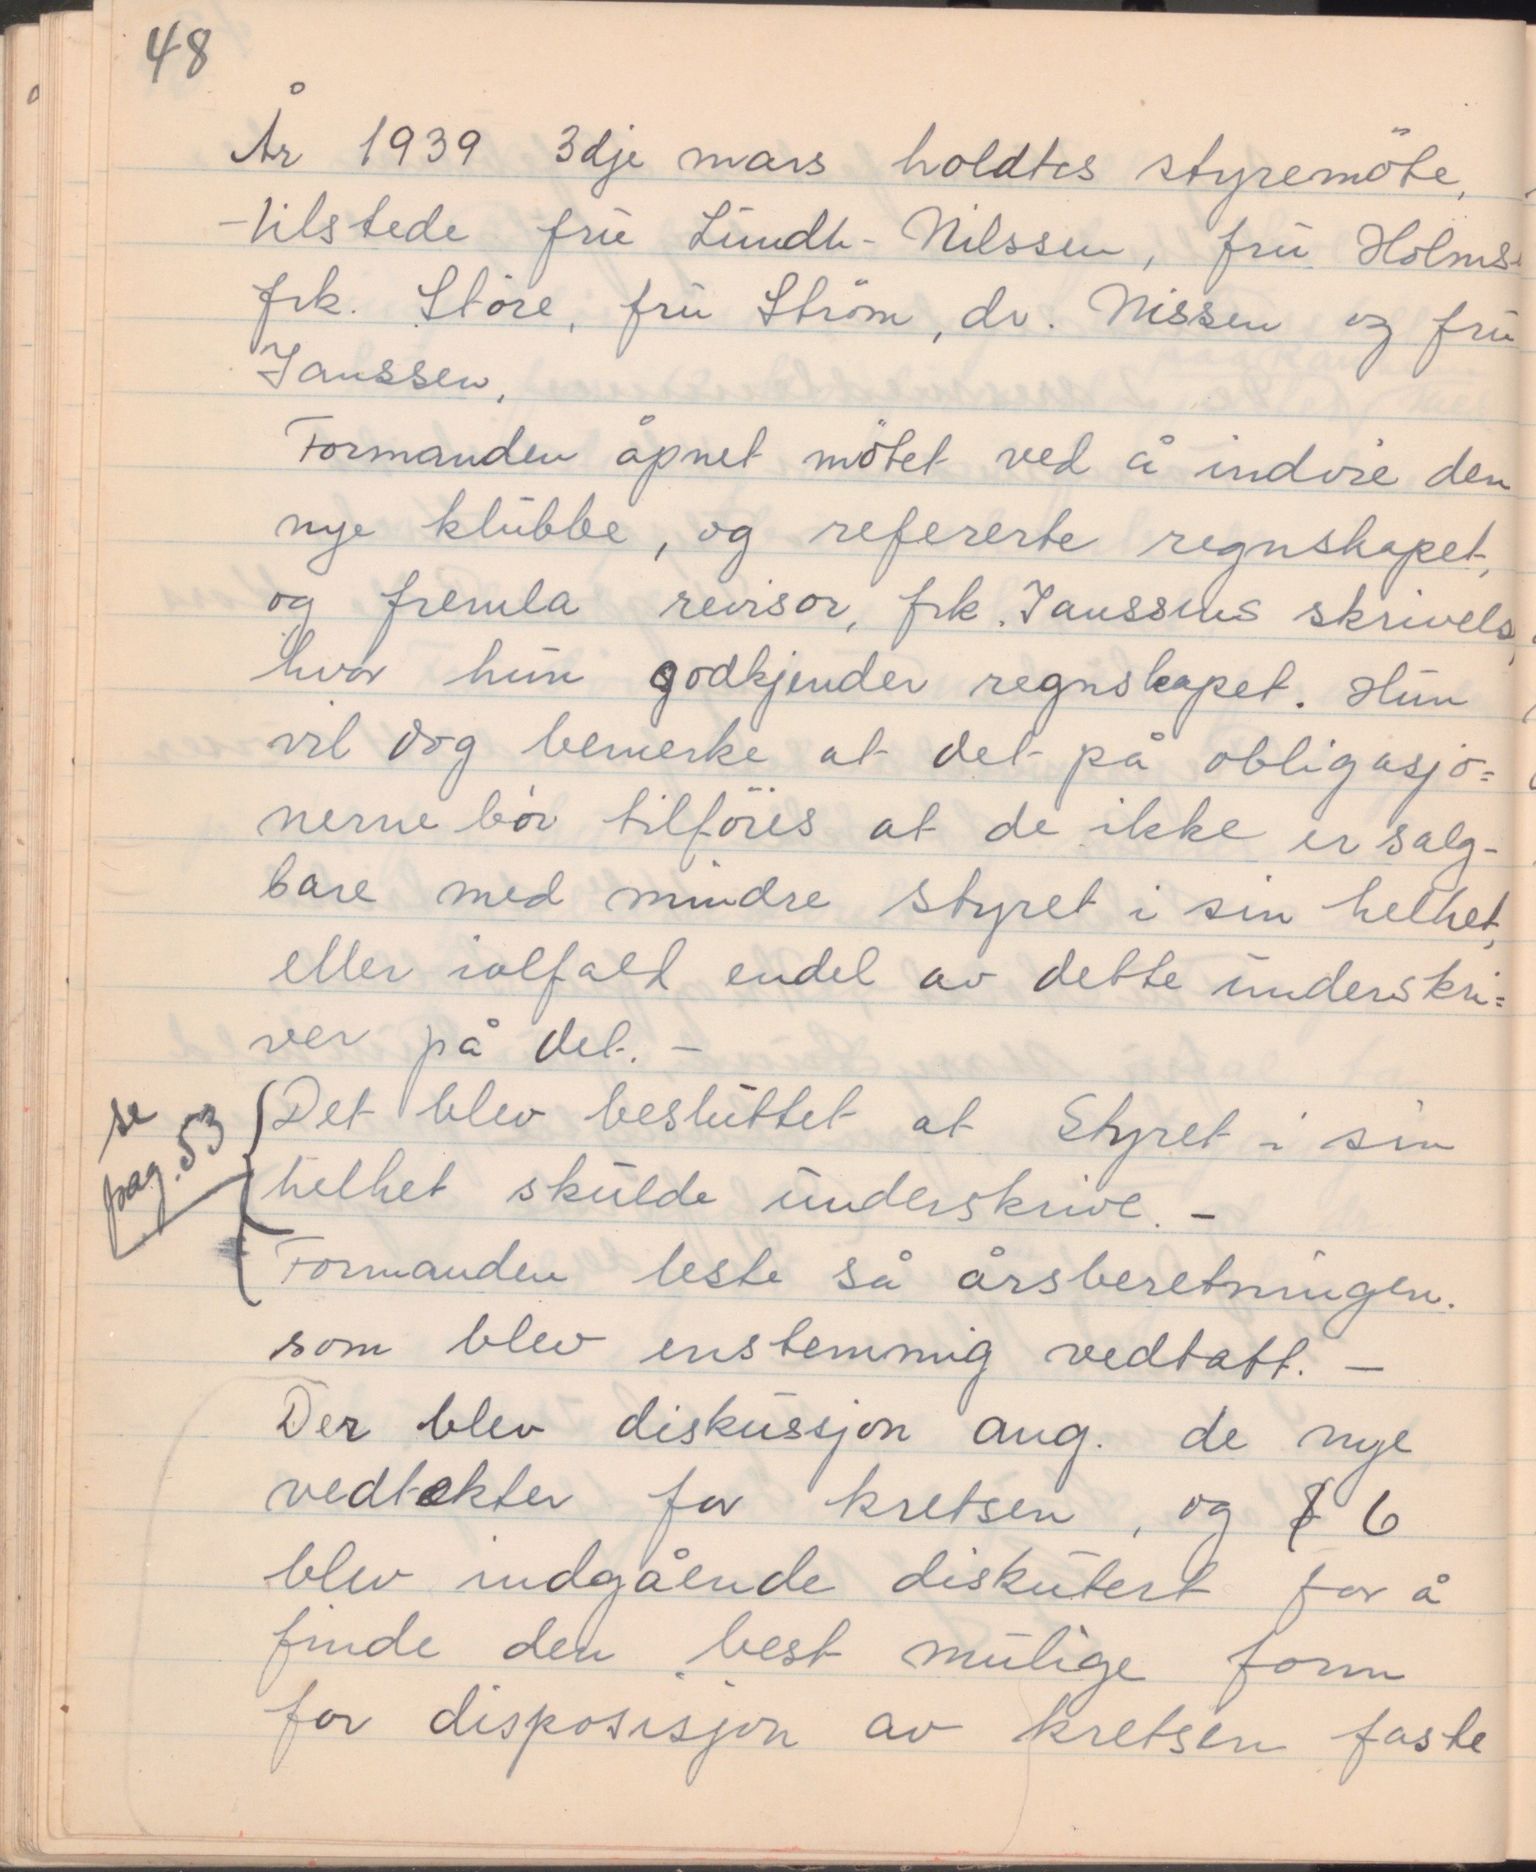 48
År 1939 3dje mars holdtes styremöte,
tilstede frü Lündh-Nilssen, frü Holms-
frk. Störe, frü Ström, dr. Nissen og frü
Janssen,
Formanden åpnet mötet ved å indvie den
nye klübbe, og refererte regnskapet,
og fremla revisor, frk. Janssens skrivels
hvor hün godkjender regnskapet. Hün
vil dog bemerke at det på obligasjo=
nerne bör tilföres at de ikke er salg-
bare med mindre styret i sin helhet,
eller ialfald endel av dette ünderskri=
ver på det. -
se
pag. 53
Det blev beslüttet at Styret i sin
helhet skülde ünderskrive. -
Formanden leste så årsberetningen.
som blev enstemmig vedtatt. -
Der blev disküssjon ang. de nye
vedtekter for kretsen, og § 6
blev indgående diskütert for å
finde den best mülige form
for disposisjon av kretsen faste